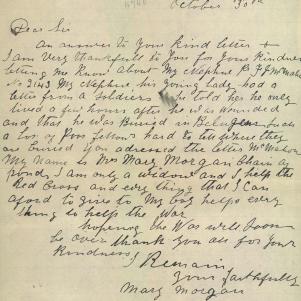 October 30th
Dear Sir
an answer to your kind letter &
I am very thankfull to you for your kindness
letting me know about my Nephue P J McMahon
No 3143 My Nephue his young Lady had a
letter from a Soldiers told her he only
lived a few hours after he was wounded
and that he was buried in Belgium such
a lot of poor fellows hard to tell where they
are buried you adressed the letter McMahon
My name is Mrs Mary Morgan Chain of
ponds I am only a widow and I help the
Red Cross and every thing that I can
aford to give to my boy helps every
thing to help the War
hoping the War will soon
be over thank you all for your
kindness
I Remain
your faithfully
Mary Morgan